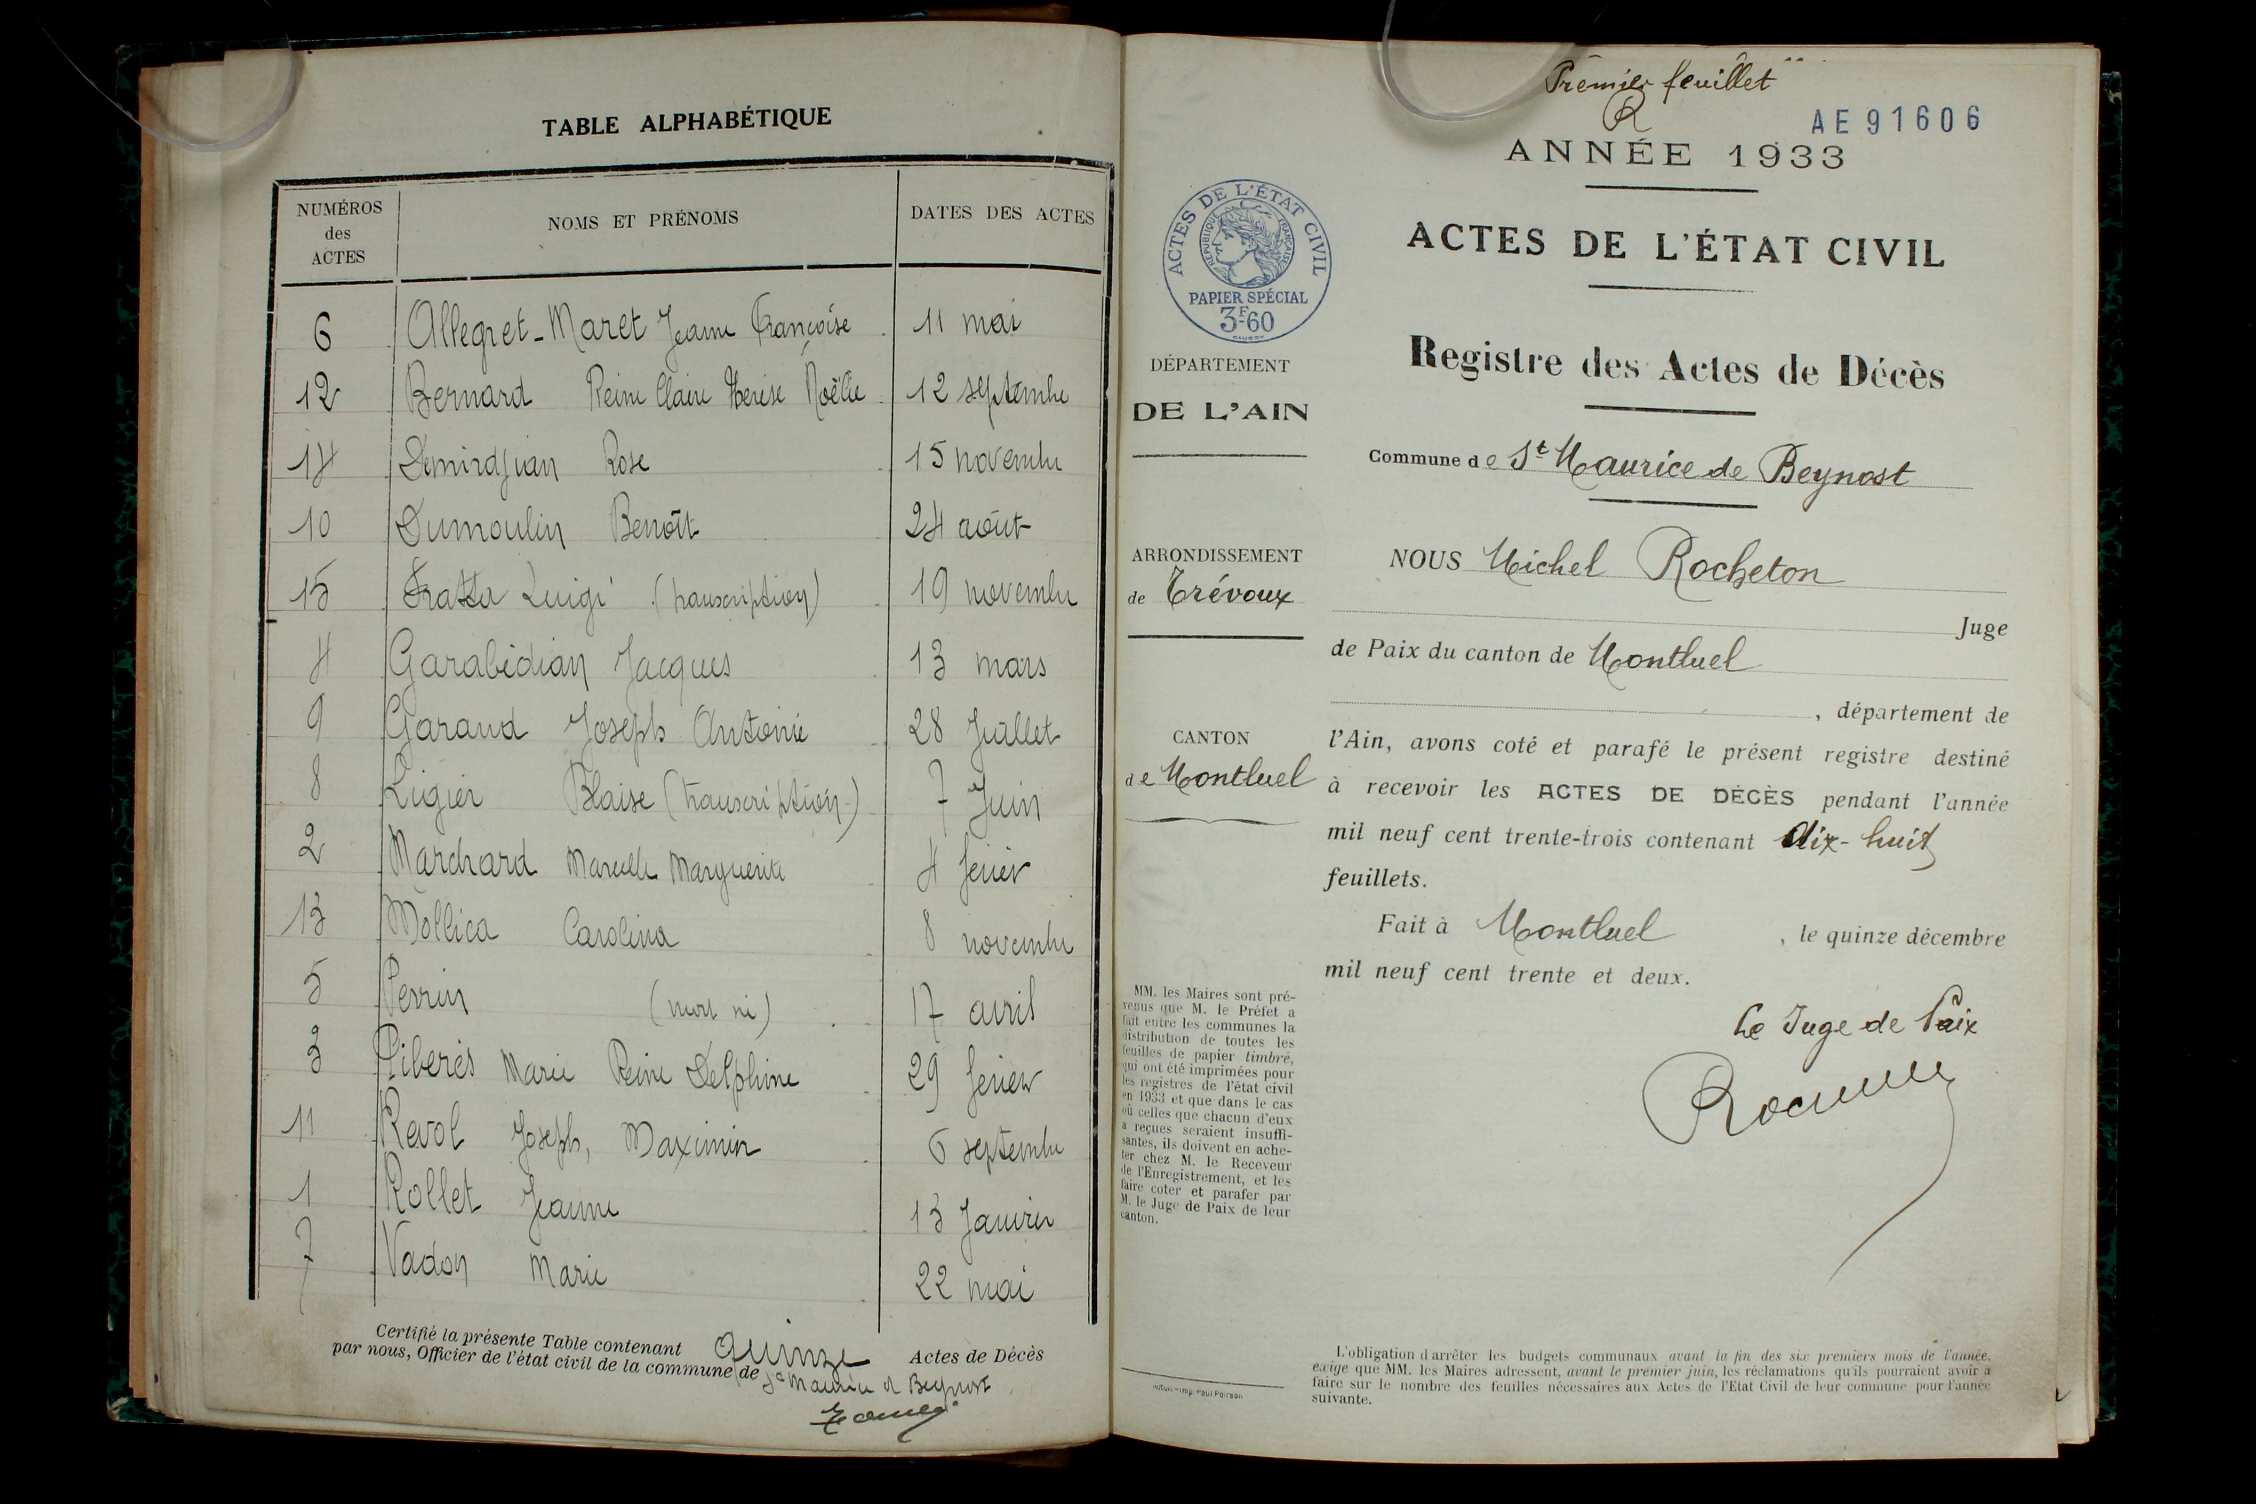 TABLE ALPHABÉTIQUE
NUMÉROS des ACTES NOMS ET PRÉNOMS DATES DES ACTES
6 Allegret-Maret Jeanne Françoise 11 mai
12 Bernard Reine Claire Thérèse Noëlie 12 septembre
14 Demirdjian Rose 15 novembre
10 Dumoulin Benoît 24 août
15 Fratta Luigi (transcription) 19 novembre
4 Garabédian Jacques 13 mars
9 Garaud Joseph Antoine 28 Juillet
8 Ligier Blaise (transcription) 7 Juin
2 Marchard Marcelle Marguerite 4 février
13 Mollica Carolina 8 novembre
5 Perrin (mort né) 17 avril
3 Piberès Marie Reine Delphine 29 février
11 Revol Joseph, Maximin 6 septembre
1 Rollet Jeanne 13 Janvier
7 Vadon Marie 22 mai
Certifié la présente Table contenant quinze Actes de Décès
par nous, Officier de l'état civil de la commune de St Maurice de Beynost
Premier feuillet
R
AE91606
ANNÉE 1933
ACTES DE L'ÉTAT CIVIL
RÉPUBLIQUE FRANÇAISE
PAPIER SPÉCIAL
3F60
ACTES DE L'ÉTAT CIVIL
Registre des Actes de Décès
DÉPARTEMENT
DE L'AIN
Commune de St Maurice de Beynost
ARRONDISSEMENT
de Trévoux
CANTON
de Montluel
NOUS Michel Rocheton
Juge
de Paix du canton de Montluel
, département de
l'Ain, avons coté et parafé le présent registre destiné
à recevoir les ACTES DE DÉCÈS pendant l'année
mil neuf cent trente-trois contenant dix-huit
feuillets.
Fait à Montluel , le quinze décembre
mil neuf cent trente et deux.
Le Juge de Paix
MM. les Maires sont pré-
venus que M. le Préfet a
fait entre les communes la
distribution de toutes les
feuilles de papier timbré,
qui ont été imprimées pour
les registres de l'état civil
en 1933 et que dans le cas
où celles que chacun d'eux
a reçues seraient insuffi-
santes, ils doivent en ache-
ter chez M. le Receveur
de l'Enregistrement, et les
faire coter et parafer par
M. le Juge de Paix de leur
canton.
L'obligation d'arrêter les budgets communaux avant la fin des six premiers mois de l'année,
exige que MM. les Maires adressent, avant le premier juin, les réclamations qu'ils pourraient avoir à
faire sur le nombre des feuilles nécessaires aux Actes de l'Etat Civil de leur commune pour l'année
suivante.